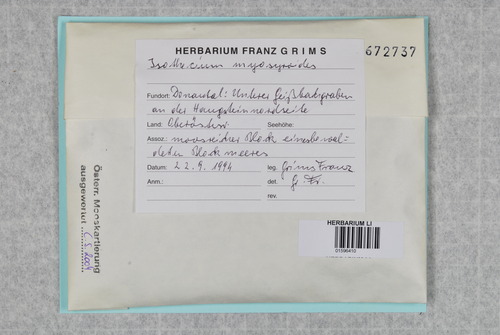 HERBARIUM FRANZ GRIMS
Isothecium myosuroides
672737
Fundort: Donautal: Unterer
an der
Land: Oberösterr. Seehöhe:
Assoz.: moosreicher Block eines bewal-
deten Blockmeeres
Datum: 22.9.1994 leg. Grims Franz
Anm.: det. Gr. Fr.
rev.
Österr. Mooskartierung
ausgewertet 2004
HERBARIUM LI